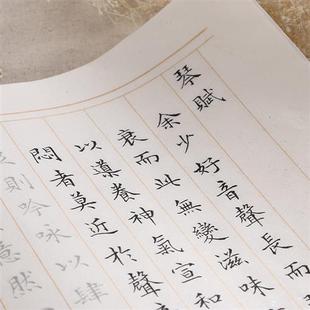 琴賦
余少好音聲長而
衰而此無變滋味
以導養神氣宣和
悶者莫近於聲
則吟詠以肆
意然